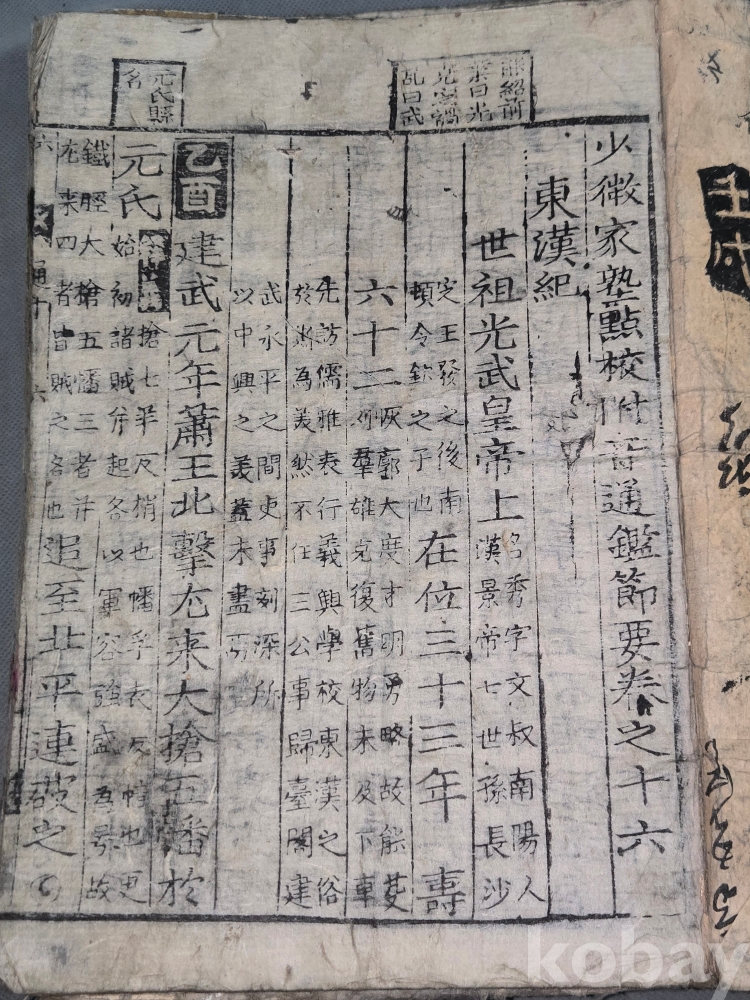 能紹前
業曰光
克定禍
乱曰武
元氏縣
名
少微家塾點校附音通鑑節要卷之十六
東漢紀
世祖光武皇帝上 名秀字文叔南陽人
漢景帝七世孫長沙
定王發之後南
頓令欽之子也 在位三十三年 壽
六十二 恢廓大度才明勇略故能芟
刈羣雄克復舊物未及下車
先訪儒雅表行義興學校東漢之俗
於斯為美然不任三公事歸臺閣建
武永平之間吏事刻深所
以中興之美蓋未盡焉
乙酉 建武元年蕭王北擊尤来大搶五幡於
元氏 搶七羊反稍也幡孚表反幟也更
始初諸賊并起各以軍容強盛為号故
鐵脛大搶五幡三者并
尤来四者皆賊之名也 追至北平連破之
壬戌
kobay